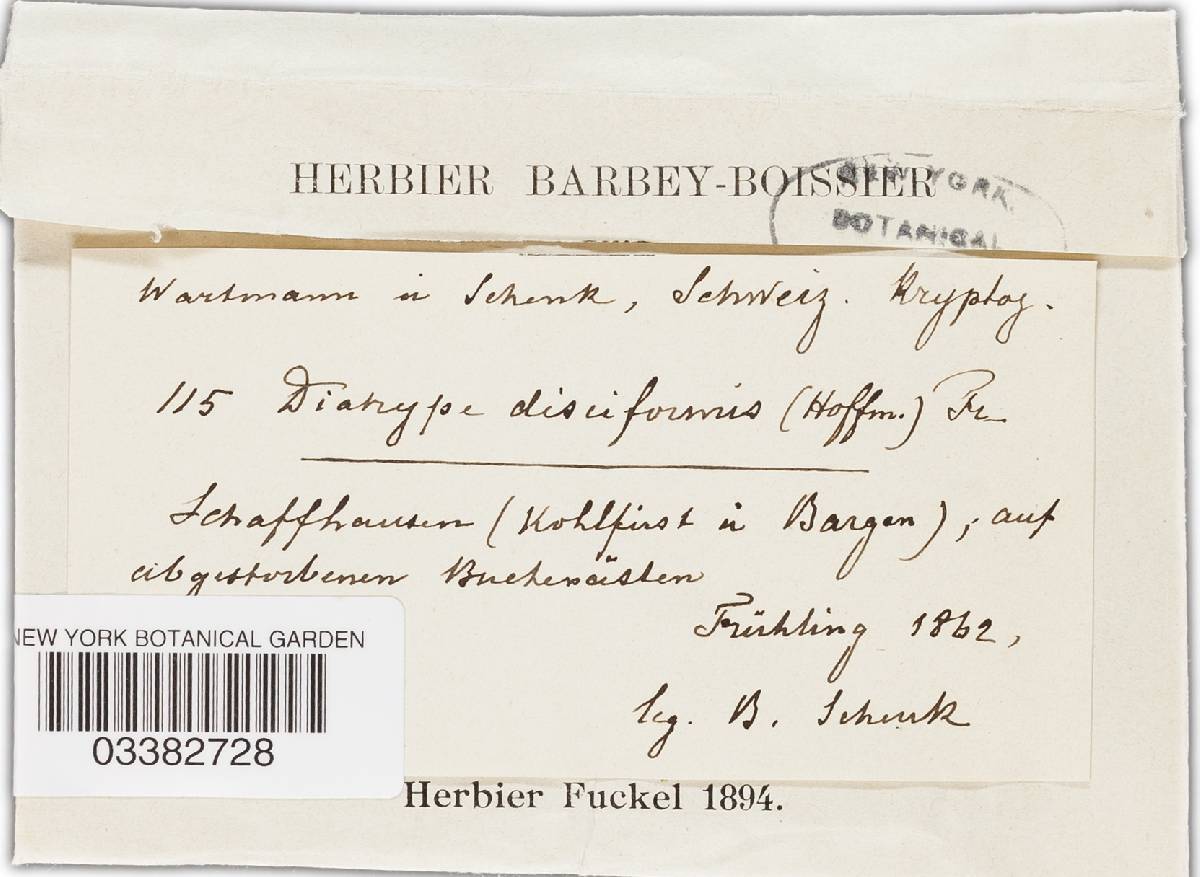 HERBIER BARBEY-BOISSIER
NEW YORK
BOTANICAL
Wartmann u Schenk, Schweiz. Kryptog.
115 Diatrype disciformis (Hoffm.) Fr
Schaffhausen (Kohlfirst u Bargen), auf
abgestorbenen Buchenästen
Frühling 1862,
leg. B. Schenk
NEW YORK BOTANICAL GARDEN
03382728
Herbier Fuckel 1894.